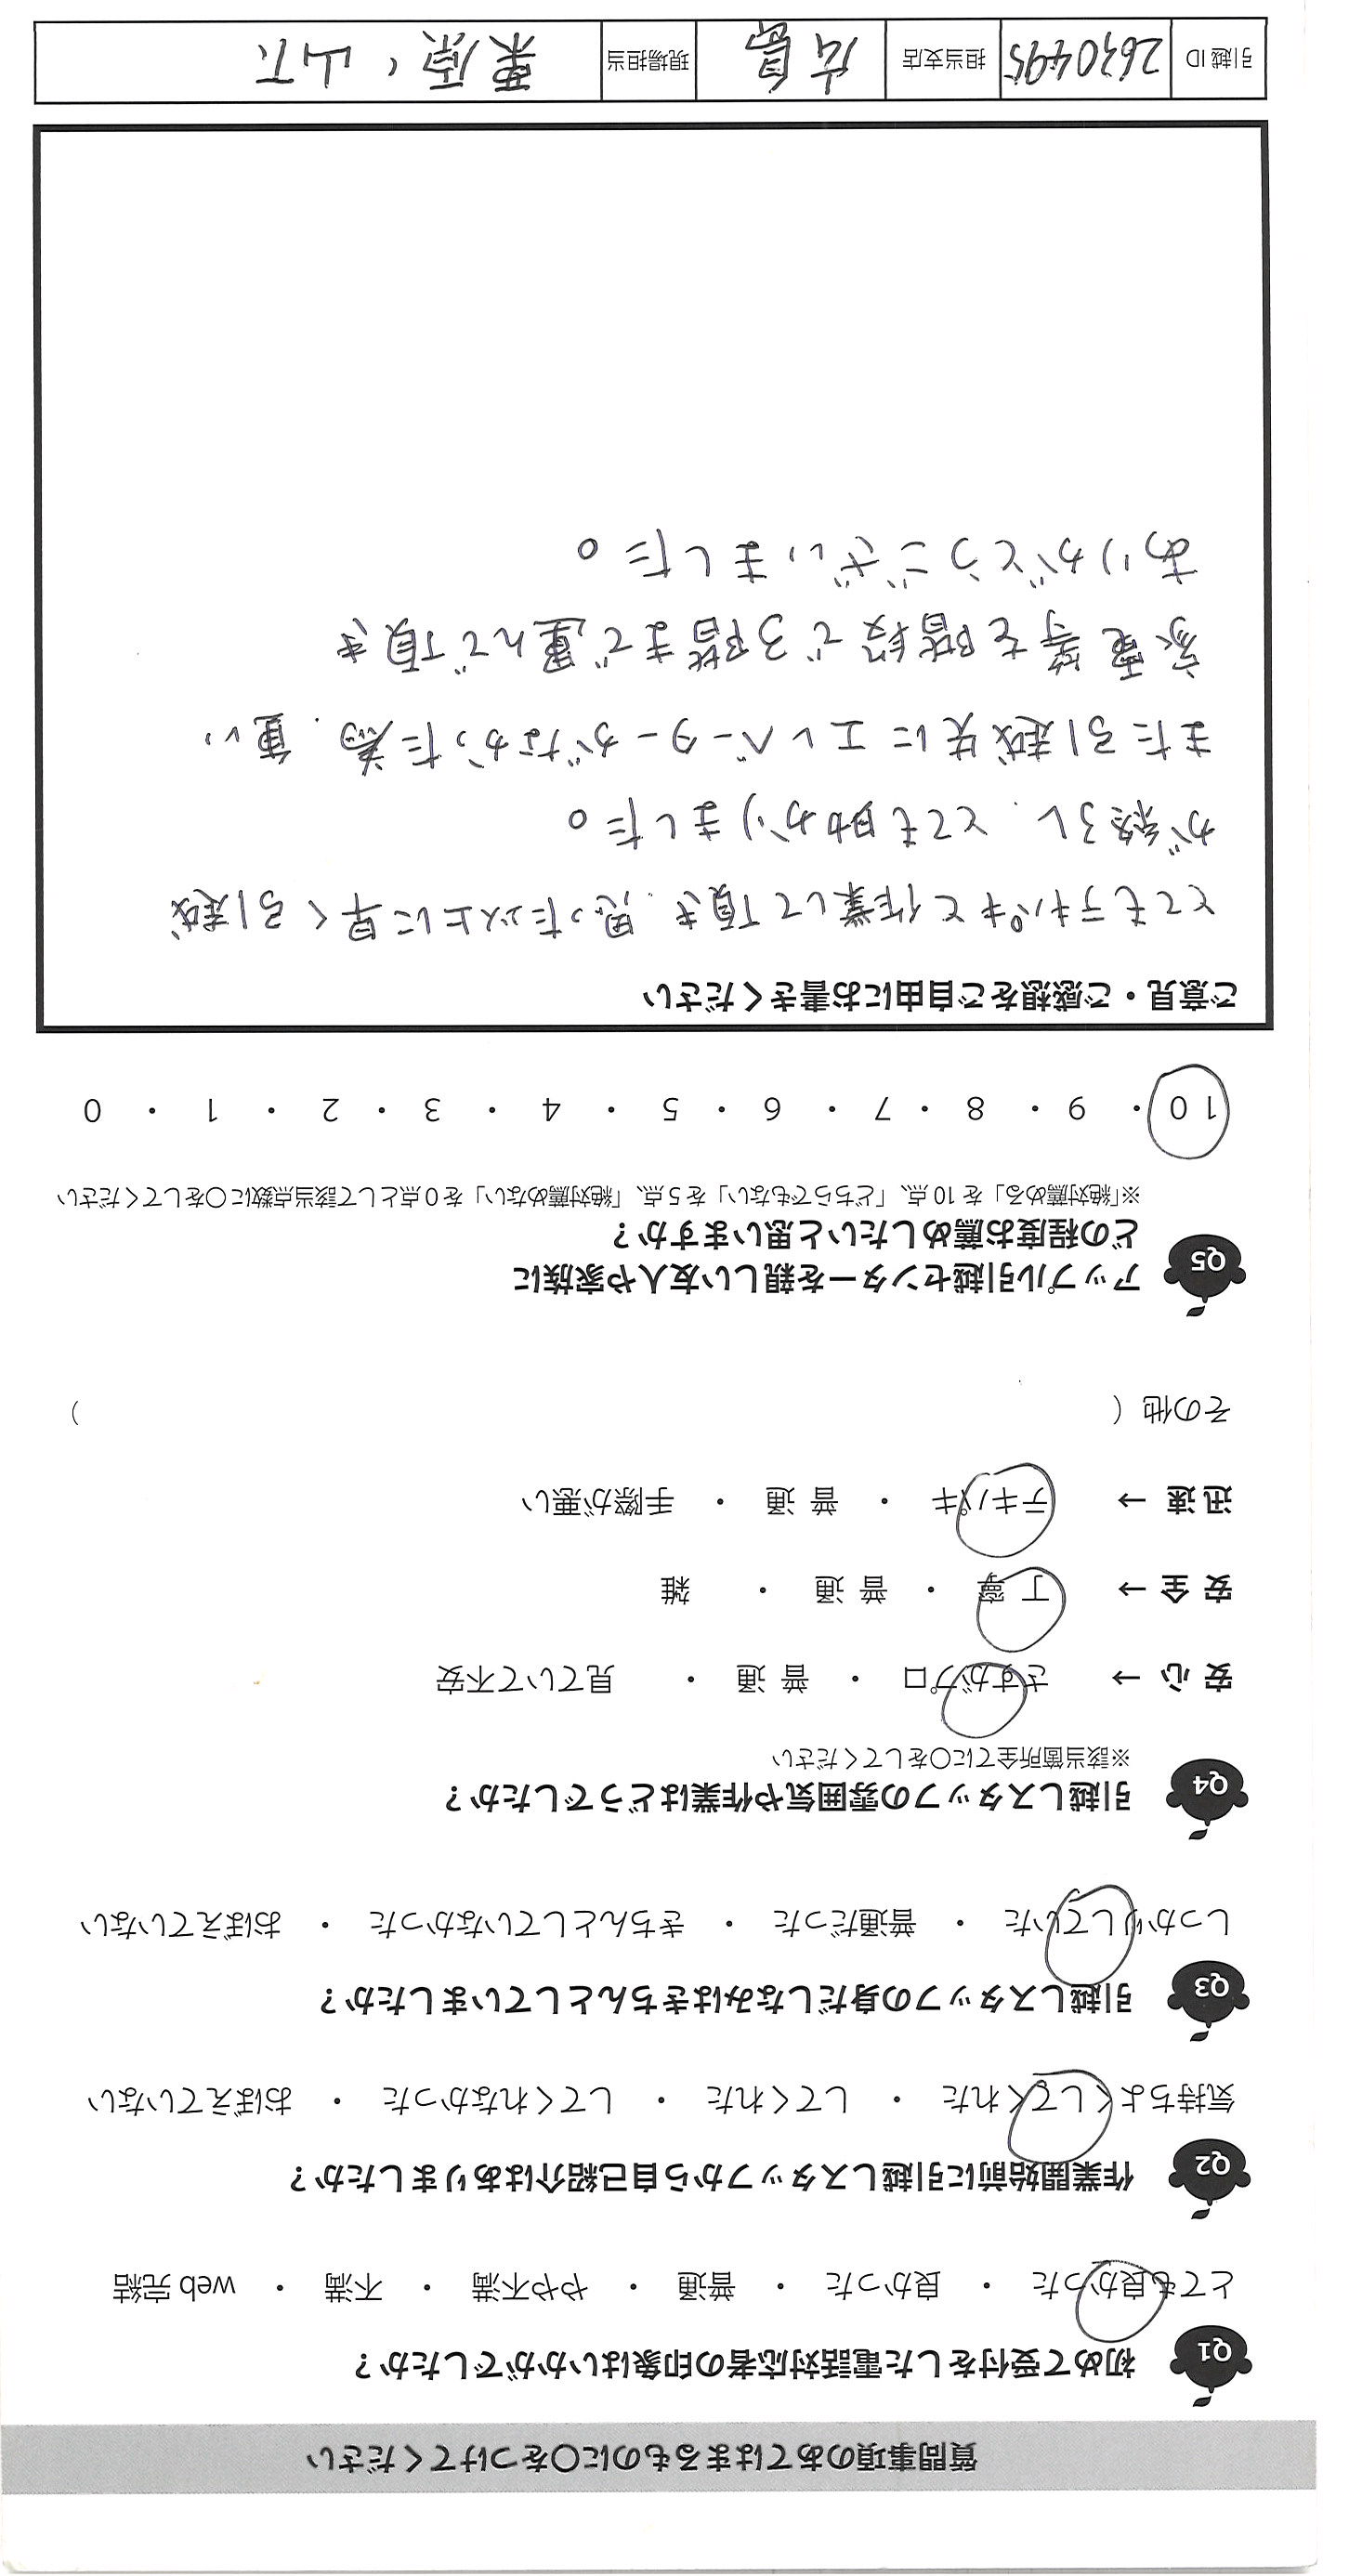 質問事項のあてはまるものに〇をつけてください
Q1 初めて受付をした電話対応者の印象はいかがでしたか？
とても良かった ・ 良かった ・ 普通 ・ やや不満 ・ 不満 ・ web 完結
Q2 作業開始前に引越しスタッフから自己紹介はありましたか？
気持ちよくしてくれた ・ してくれた ・ してくれなかった ・ おぼえていない
Q3 引越しスタッフの身だしなみはきちんとしていましたか？
しっかりしていた ・ 普通だった ・ きちんとしていなかった ・ おぼえていない
Q4 引越しスタッフの雰囲気や作業はどうでしたか？
※該当箇所全てに〇をしてください
安 心 → さすがプロ ・ 普 通 ・ 見ていて不安
安 全 → 丁 寧 ・ 普 通 ・ 雑
迅 速 → テキパキ ・ 普 通 ・ 手際が悪い
その他 （ ）
Q5 アップル引越センターを親しい友人や家族に
どの程度お薦めしたいと思いますか？
※「絶対薦める」を 10 点、「どちらでもない」を 5 点、「絶対薦めない」を 0 点として該当点数に〇をしてください
10 ・ 9 ・ 8 ・ 7 ・ 6 ・ 5 ・ 4 ・ 3 ・ 2 ・ 1 ・ 0
ご意見・ご感想をご自由にお書きください
とてもテキパキと作業して頂き、思った以上に早く引越
が終了し、とても助かりました。
また引越先にエレベーターがなかった為、重い
家電等を階段で3階まで運んで頂き
ありがとうございました。
引越 ID 2630495 担当支店 広島 現場担当 栗原、山下